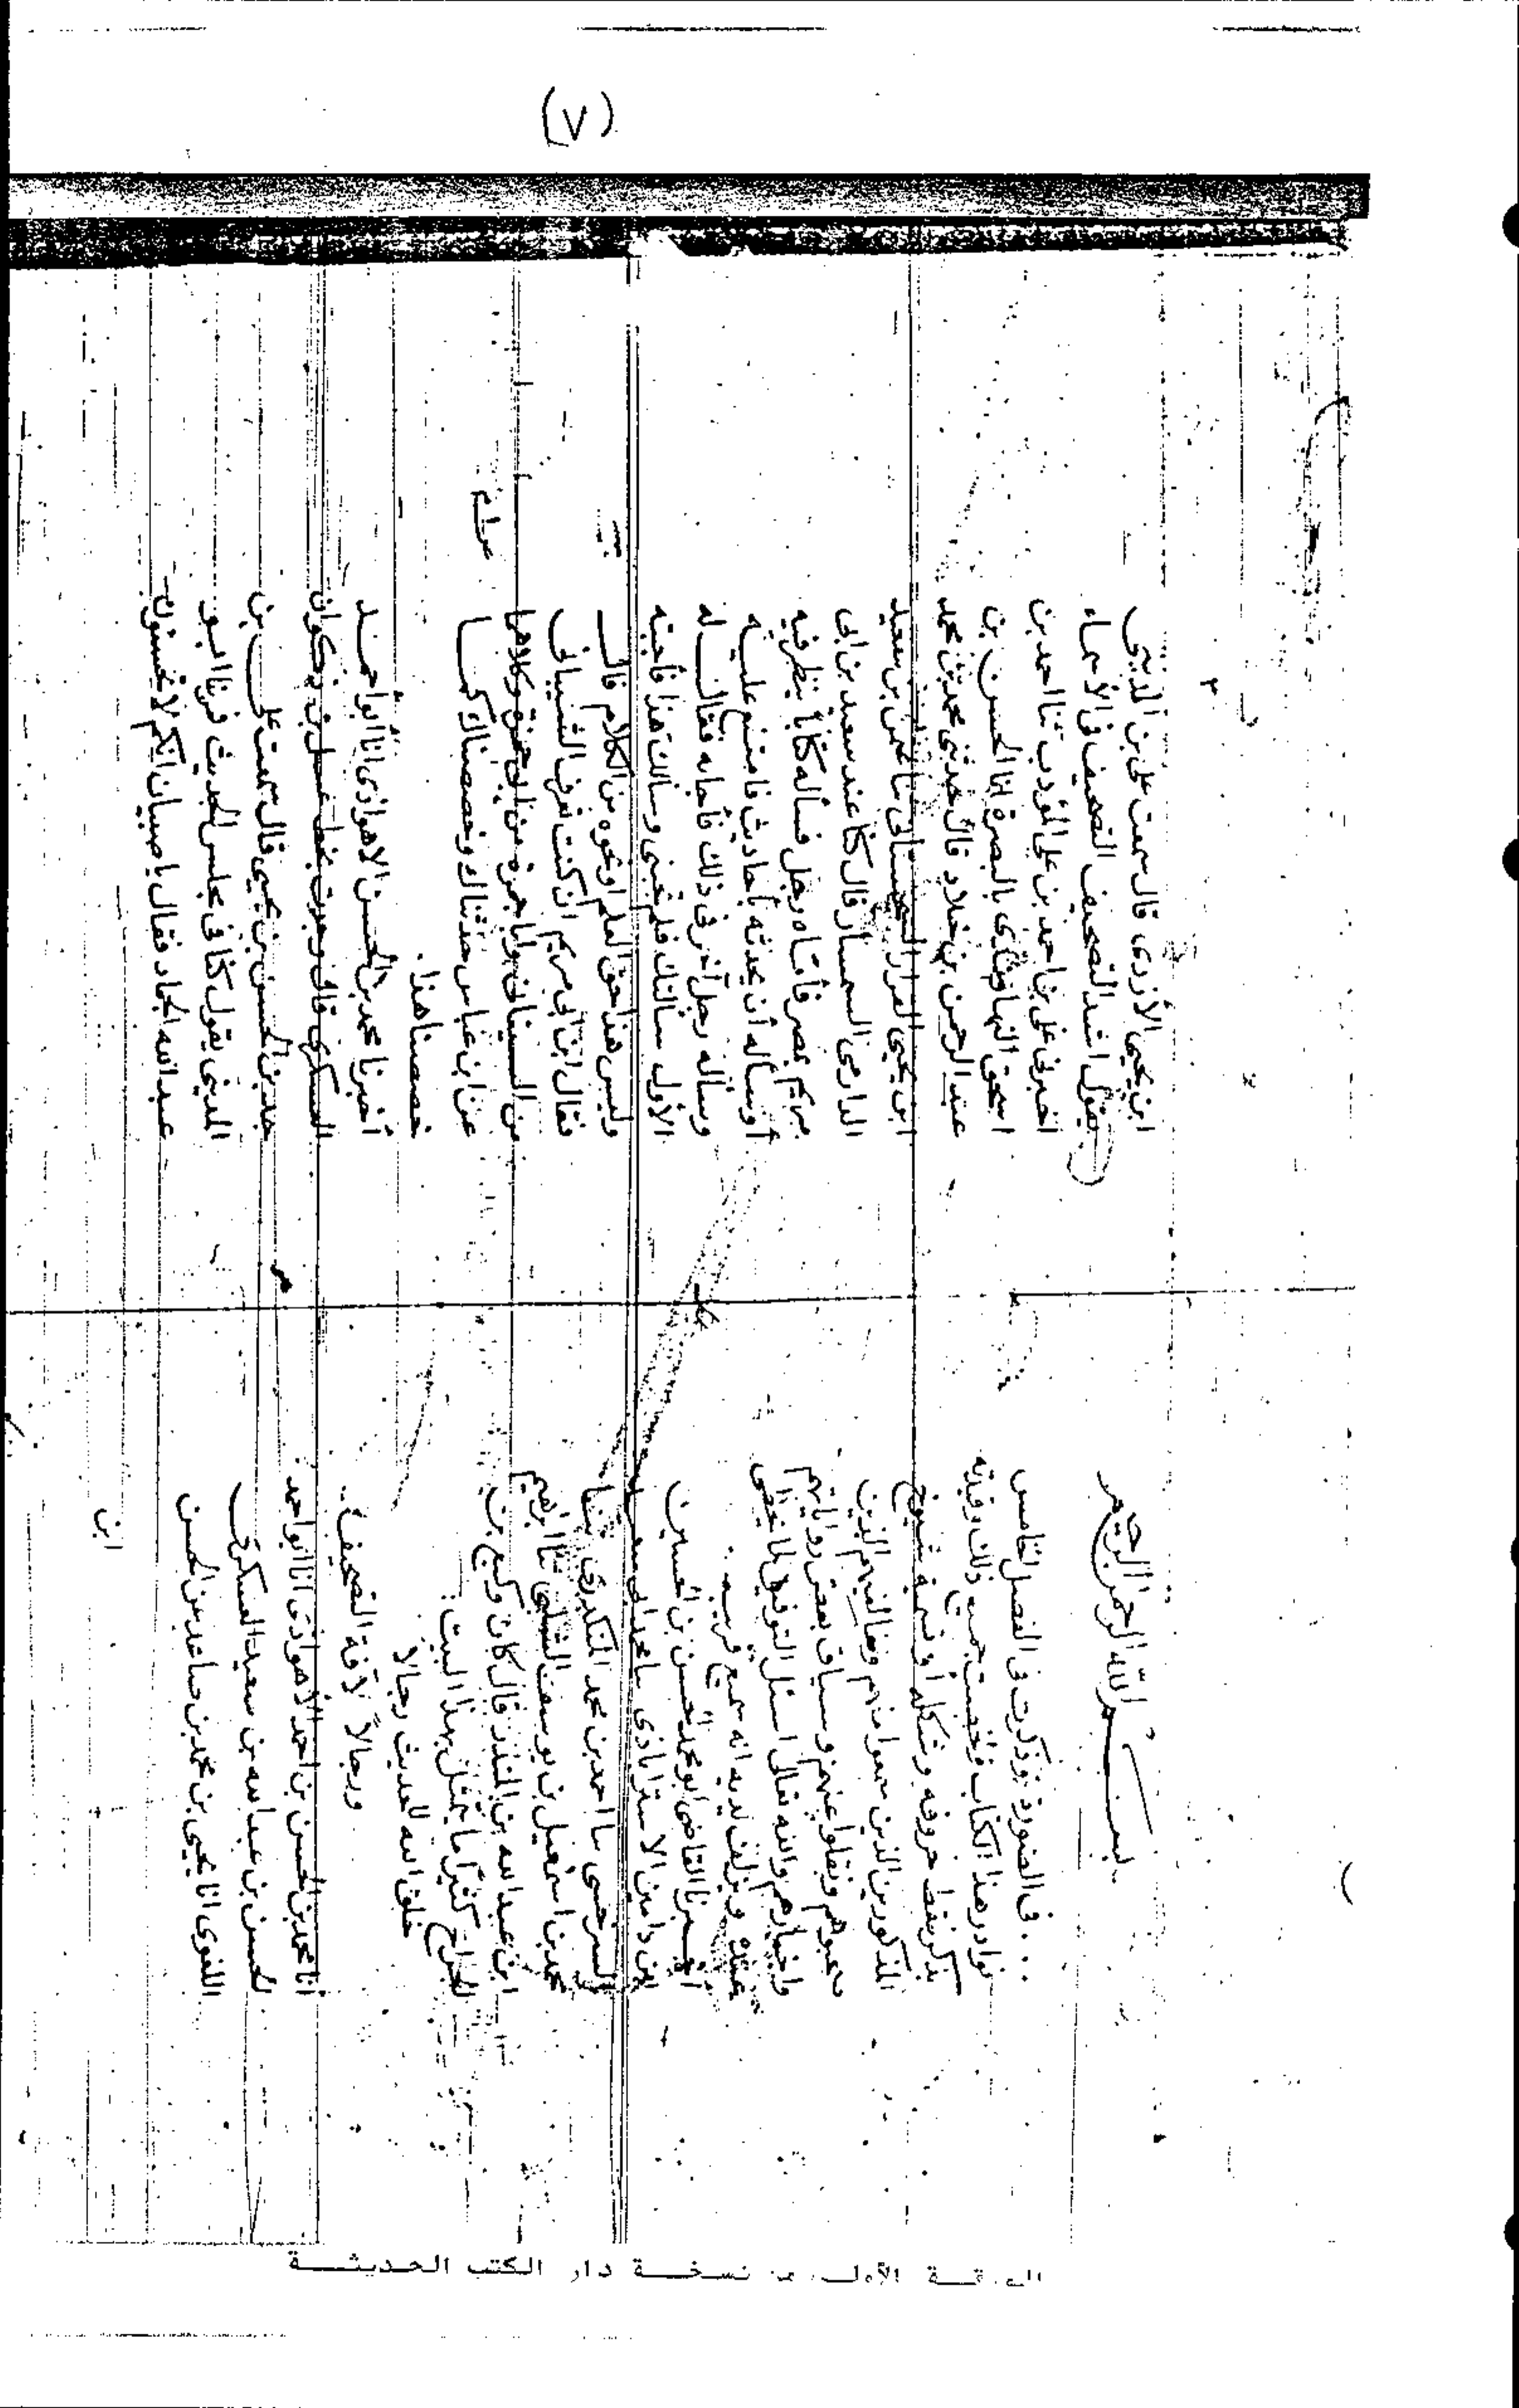 (٧)
بسم الله الرحمن الرحيم
... في الضرورة وذكرت في الفصل الخامس
نوادر هذا الكتاب وختمت جميع ذلك وقيدته
بذكر نقط حروفه وشكله أو تسمية شيوخ
المذكورين الذين سمعوا منهم ومخالفيهم الذين
صحبوهم ونقلوا عنهم وسياق بعض رواياتهم
واخبارهم والله تعالى اسئل التوفيق لما يحظى
عنده ويزلف لديه انه سميع قريب
أخبرنا القاضي ابو محمد الحسن بن الحسين
ابن رامين الاستراباذي
السرخسي نا احمد بن محمد المنكدري ثنا
محمد بن اسمعيل بن يوسف السلمي ثنا ابرهيم
ابن عبد الله بن المنذر قال كان وكيع بن
الجراح كثيرا ما يتمثل بهذا البيت
خلق الله للحديث رجالا
ورجالا لآفة التصحيف
أنا محمد بن الحسن بن احمد الأهوازي انا ابو احمد
الحسن بن عبد الله بن سعيد العسكري
اللغوي انا يحيى بن محمد بن صاعد عن الحسن
ابن
ابن يحيى الأزدي قال سمعت علي بن المديني
يقول اشد التصحيف التصحيف في الأسماء
اخبرني علي بن احمد بن علي المؤدب ثنا احمد بن
اسحق النهاوندي بالبصرة انا الحسن بن
عبد الرحمن بن خلاد قال حدثني محمد بن محمد
ابن يحيى القزاز السجستاني نا عثمن بن سعيد
الدارمي السمسار قال كنا عند سعيد بن ابي
مريم بمصر فأتاه رجل فسأله كتابا ينظر فيه
أو سأله أن يحدثه بأحاديث فامتنع عليه
وسأله رجل آخر في ذلك فأجابه فقال له
الأول سألتك فلم تجبني وسألك هذا فأجبته
وليس هذا حق العلم او نحوه من الكلام قال
فقال ابن ابي مريم ان كنت تعرف الشيباني
من السيناني وابا جمرة من ابي حمزة وكلاهما
عن ابن عباس حدثناك وخصصناك كما
خصصنا هذا
أخبرنا محمد بن الحسن الاهوازي انا أبو احمد
العسكري قال وجدت بخط عسل بن ذكوان
محمد بن الحسن بن يحيى قال سمعت علي بن
المديني يقول كنا في مجلس الحديث فمر بنا ابو
عبد الله الجماز فقال يا صبيان انكم لا تحسنون
الورقة الأولى من نسخة دار الكتب الحديثة